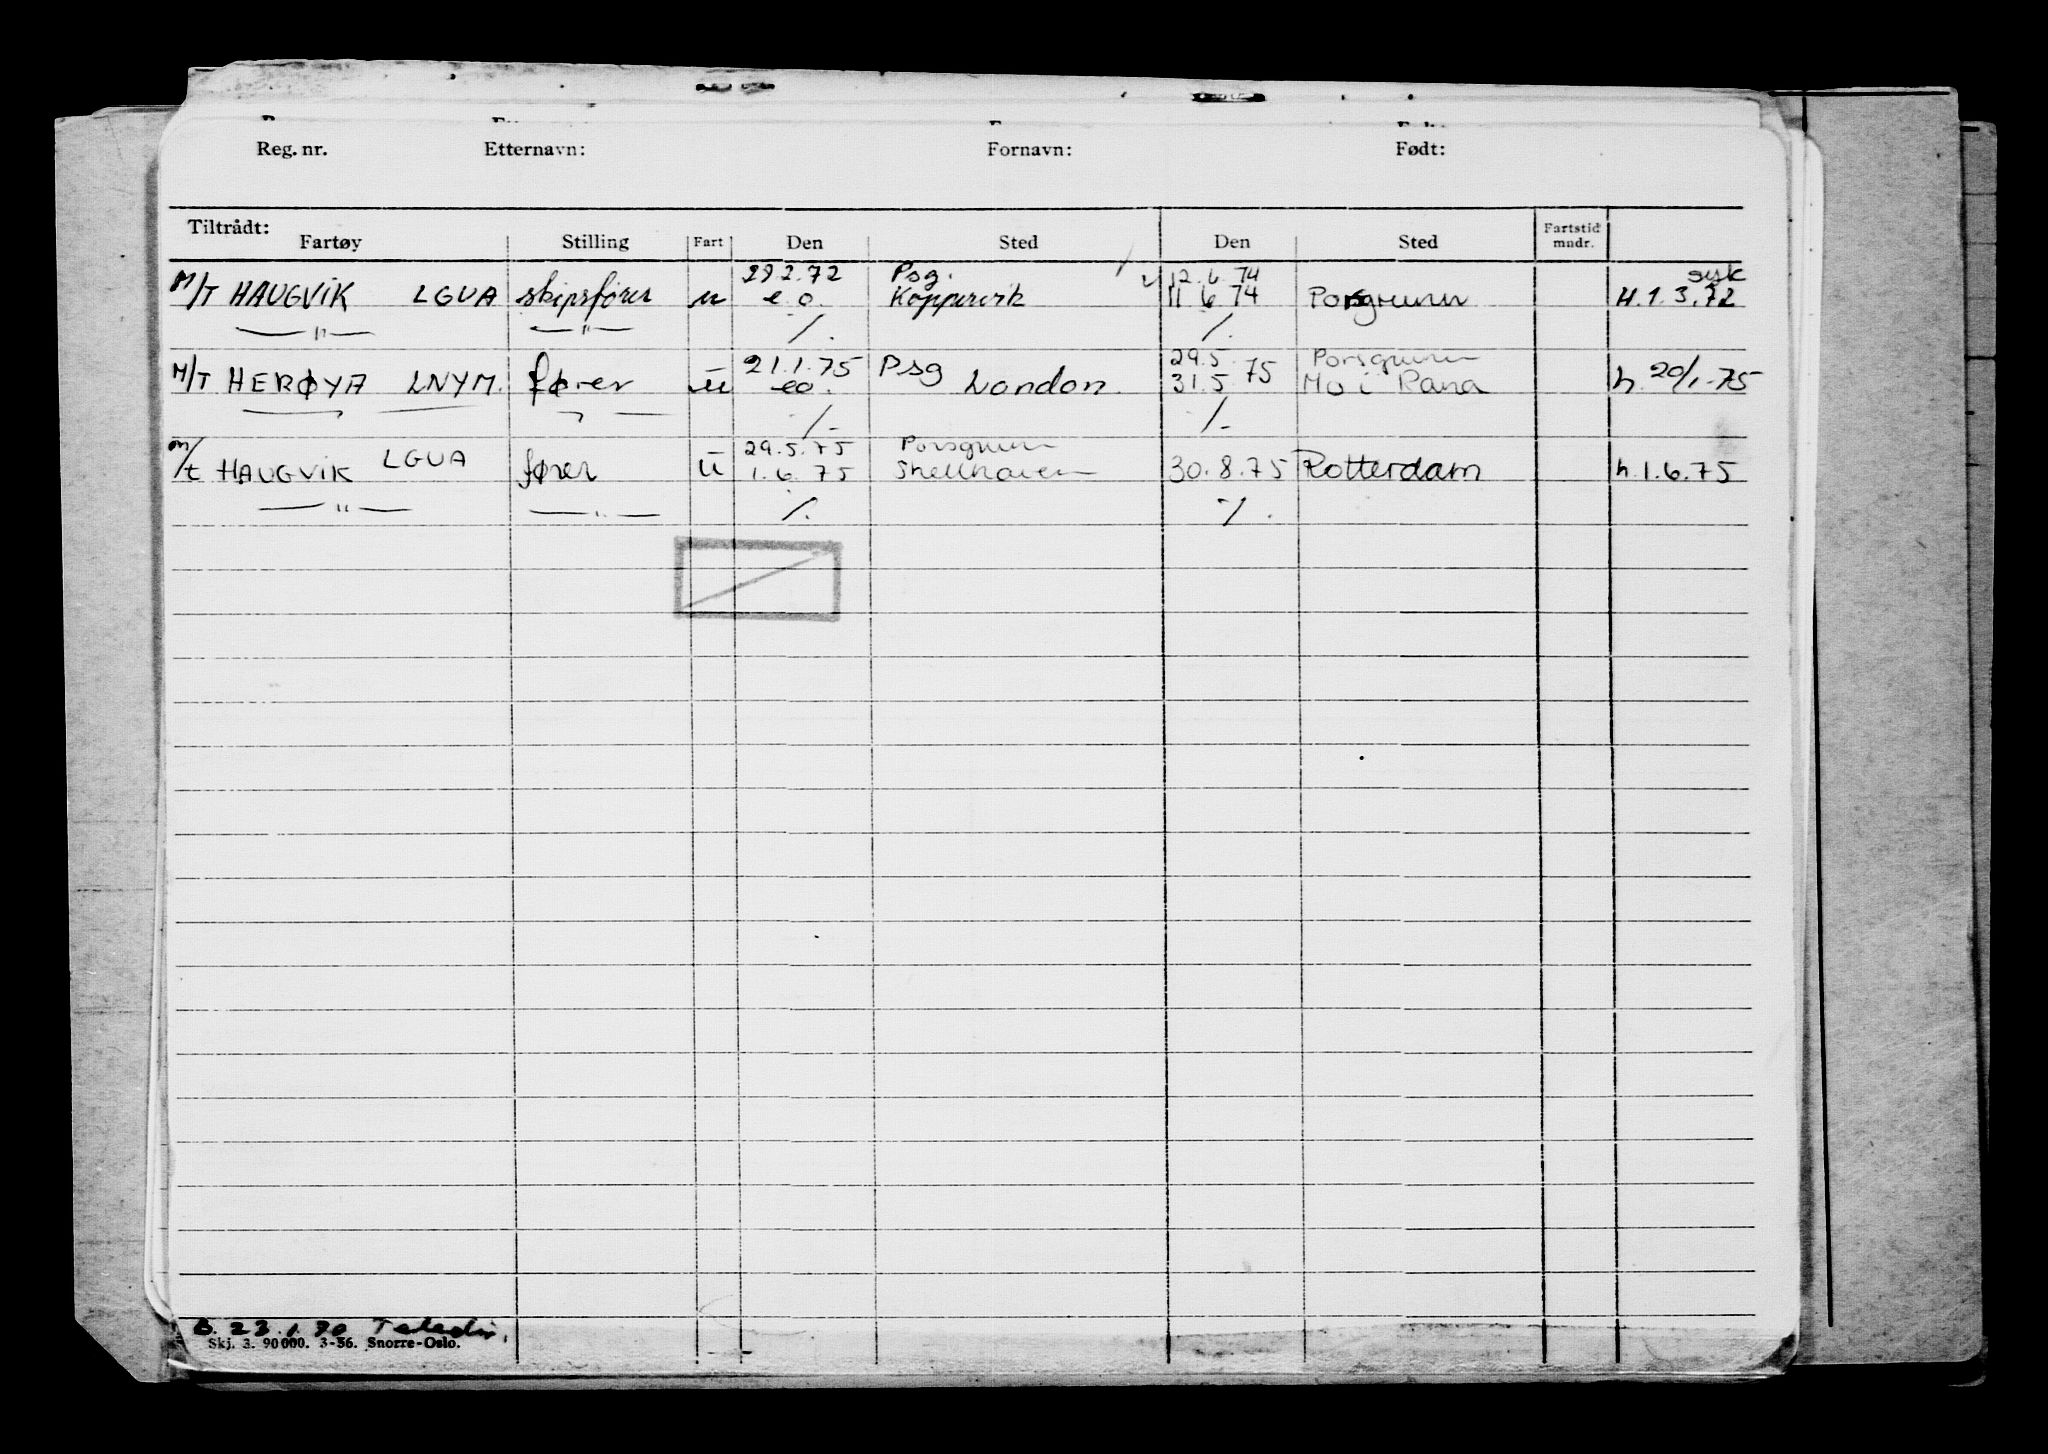 Reg. nr. Etternavn: Fornavn: Født:
Tiltrådt:
Fartøy Stilling Fart Den Sted Den Sted Fartstid mndr.
29.2.72 Psg. 12.6.74 syk
M/T HAUGVIK LGUA skipsfører u e.o. Koppervik 11.6.74 Porsgrunn H.1.3.72
—"— —"— ./. ./.
21.1.75 Psg 29.5 75 Porsgrunn
M/T HERØYA LNYM. fører u eo. London. 31.5 Mo i Rana h. 20/1-75
./. ./.
29.5.75 Porsgrunn
M/t HAUGVIK LGUA fører u 1.6.75 Shellhaven 30.8.75 Rotterdam h.1.6.75
—"— —"— ./. ./.
B. 23.1.70 Teledir.
Skj. 3. 90000. 3-56. Snorre-Oslo.